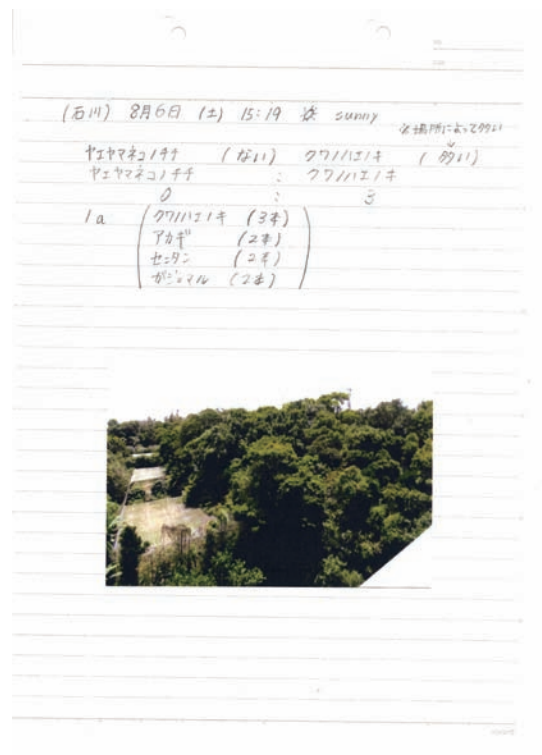 (石川) 8月6日 (土) 15:19 sunny
※場所によって多い
ヤエヤマネコノチチ (ない) クワノハエノキ (多い)
ヤエヤマネコノチチ : クワノハエノキ
0 : 3
1a クワノハエノキ (3本)
アカギ (2本)
センダン (2本)
ガジュマル (2本)